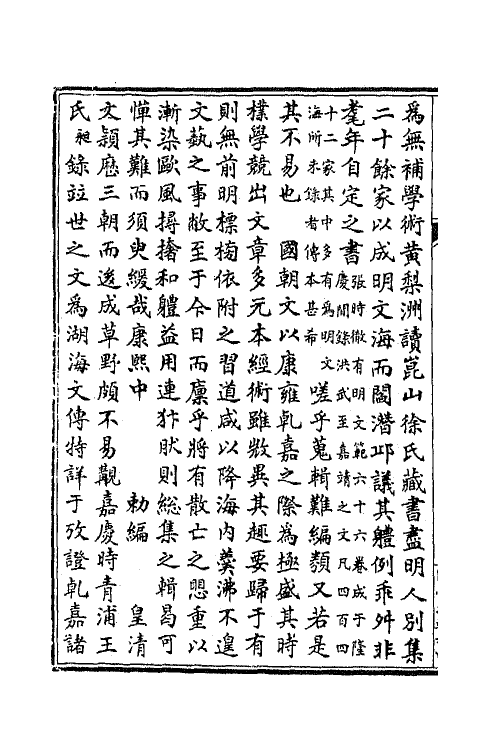 爲無補學術黃梨洲讀崑山徐氏藏書盡明人別集
二十餘家以成明文海而閻潛邱議其體例乖舛非
耄年自定之書張時徹有明文範六十六卷成于隆
慶間錄洪武至嘉靖之文凡四百四
十二家其中多有爲明文
海所未錄者傳本甚希嗟乎蒐輯難編纇又若是
其不易也　國朝文以康雍乾嘉之際爲極盛其時
樸學競出文章多元本經術雖敚異其趣要歸于有
則無前明標榜依附之習道咸以降海内羹沸不遑
文蓺之事敝至于今日而廩乎將有散亡之思重以
漸染歐風撏撦和體益用連犿肰則総集之輯曷可
憚其難而須臾緩哉康熙中　　　勅編　　皇清
文穎歷三朝而後成草野頗不易觀嘉慶時青浦王
氏昶錄竝世之文爲湖海文傳特詳于攷證乾嘉諸